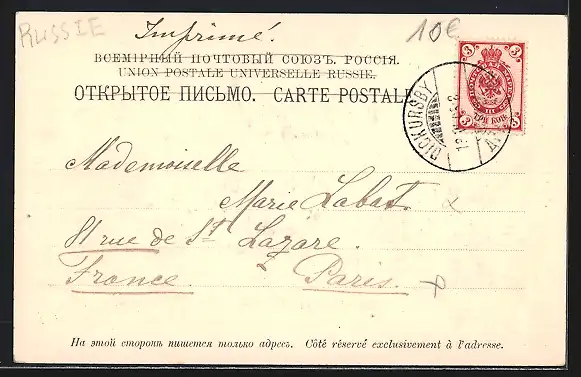 RUSSIE
Imprimé.
10€
ВСЕМІРНЫЙ ПОЧТОВЫЙ СОЮЗЪ. РОССІЯ.
UNION POSTALE UNIVERSELLE RUSSIE.
ОТКРЫТОЕ ПИСЬМО. CARTE POSTALE
3 3
3 3
ТРИ КОП.
DICKURSBY
Mademoiselle
Marie Labat.
81 rue de St Lazare.
France. Paris.
На этой сторонѣ пишется только адресъ. Côté réservé exclusivement à l'adresse.